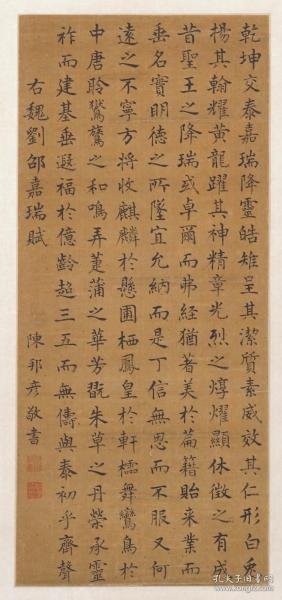 乾坤交泰嘉瑞降靈皓雉呈其潔質素威效其仁形白兔
揚其翰耀黃龍躍其神精章光烈之焞燿顯休徵之有成
昔聖王之降瑞或卓爾而弗經猶著美於篇籍貽来業而
垂名實明德之所墜宜允納而是丁信無思而不服又何
遠之不寧方將收麒麟於懸圃栖鳳皇於軒檽舞鸞鳥於
中唐聆鸑鷟之和鳴弄萐蒲之華芳翫朱草之丹榮承靈
祚而建基垂遐福於億齡超三五而無儔與泰初乎齊聲
右魏劉邵嘉瑞賦
陳邦彦敬書
孔夫子旧书网